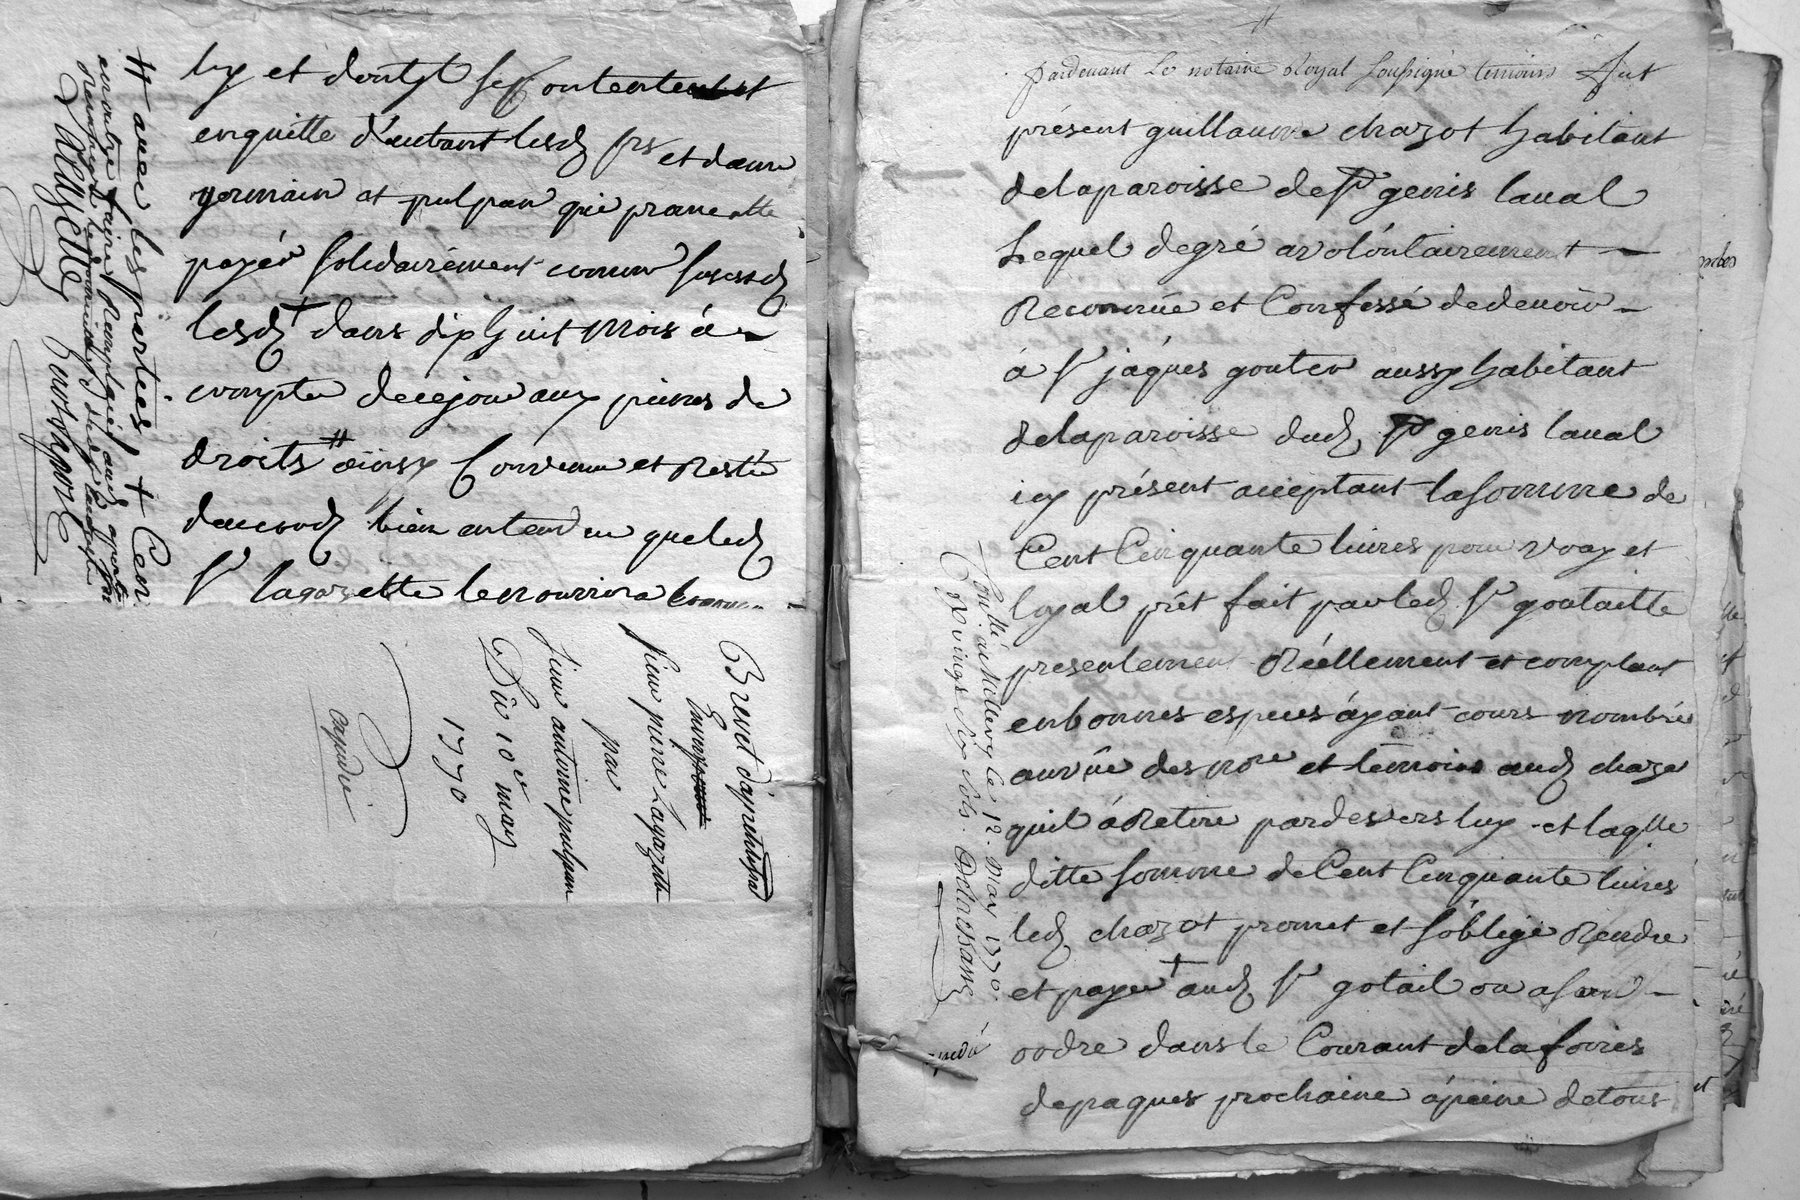 luy et dont il se contentent
en quitte d'autant lesd srs et dame
germain et pulpan qui promette
payér solidairément comme susesd
lesd + dans dix huit mois á
compter de ce jour aux peines de
droits # äinsy Convenu et Resté
daccord bien entendu que led
sr lagazette le nourrira comme
# avec les parties + Cen
Lagazette
Brevet d'aprentissage
par
sieur pierre Lagazette
par
sieur antoine pulpan
Du 10er may
1770
expedié
pardevant Le notaire Royal soussigné temoins Fut
présent guillaume chazot habitant
de la paroisse de st genis laval
Lequel de gré a volóntairement
Reconnüe et Confessé de devoir
á sr jáques gouter aussy habitant
de la paroisse dud st genis laval
icy présent acceptant la somme de
Cent Cinquante livres pour vray et
loyal prét fait par led sr goutaille
presentement Réellement et comptant
en bonnes especes áyant cours nombrée
au vüe des nore et témoins aud chaze
quil á Retiré pardesvers luy et laqlle
ditte somme de Cent Cinquante livres
led chazot promet et s'oblige Rendre
et payer + aud sr gotail ou a son
ordre dans le Courant de la foires
de paques prochaine á peine de tous
Conllé á Millery le 12. may 1770.
R vingt six sols. Delachasse
expedié